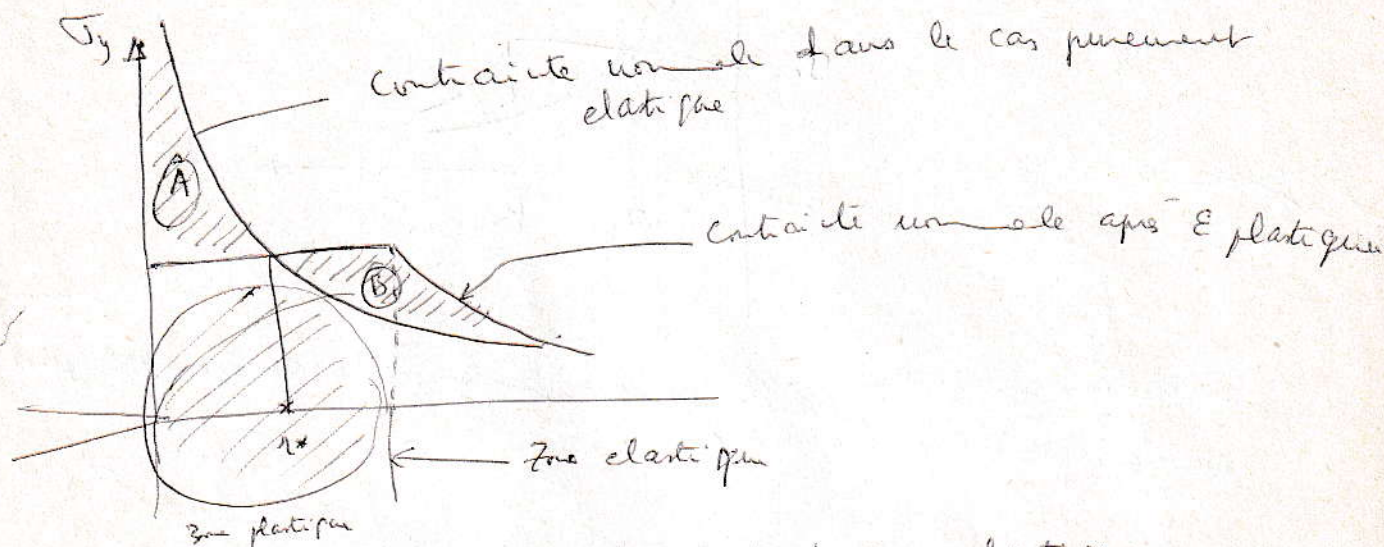 σy
contrainte normale dans le cas purement
elastique
A
contrainte normale après ε plastique
B
r*
Zone elastique
zone plastique